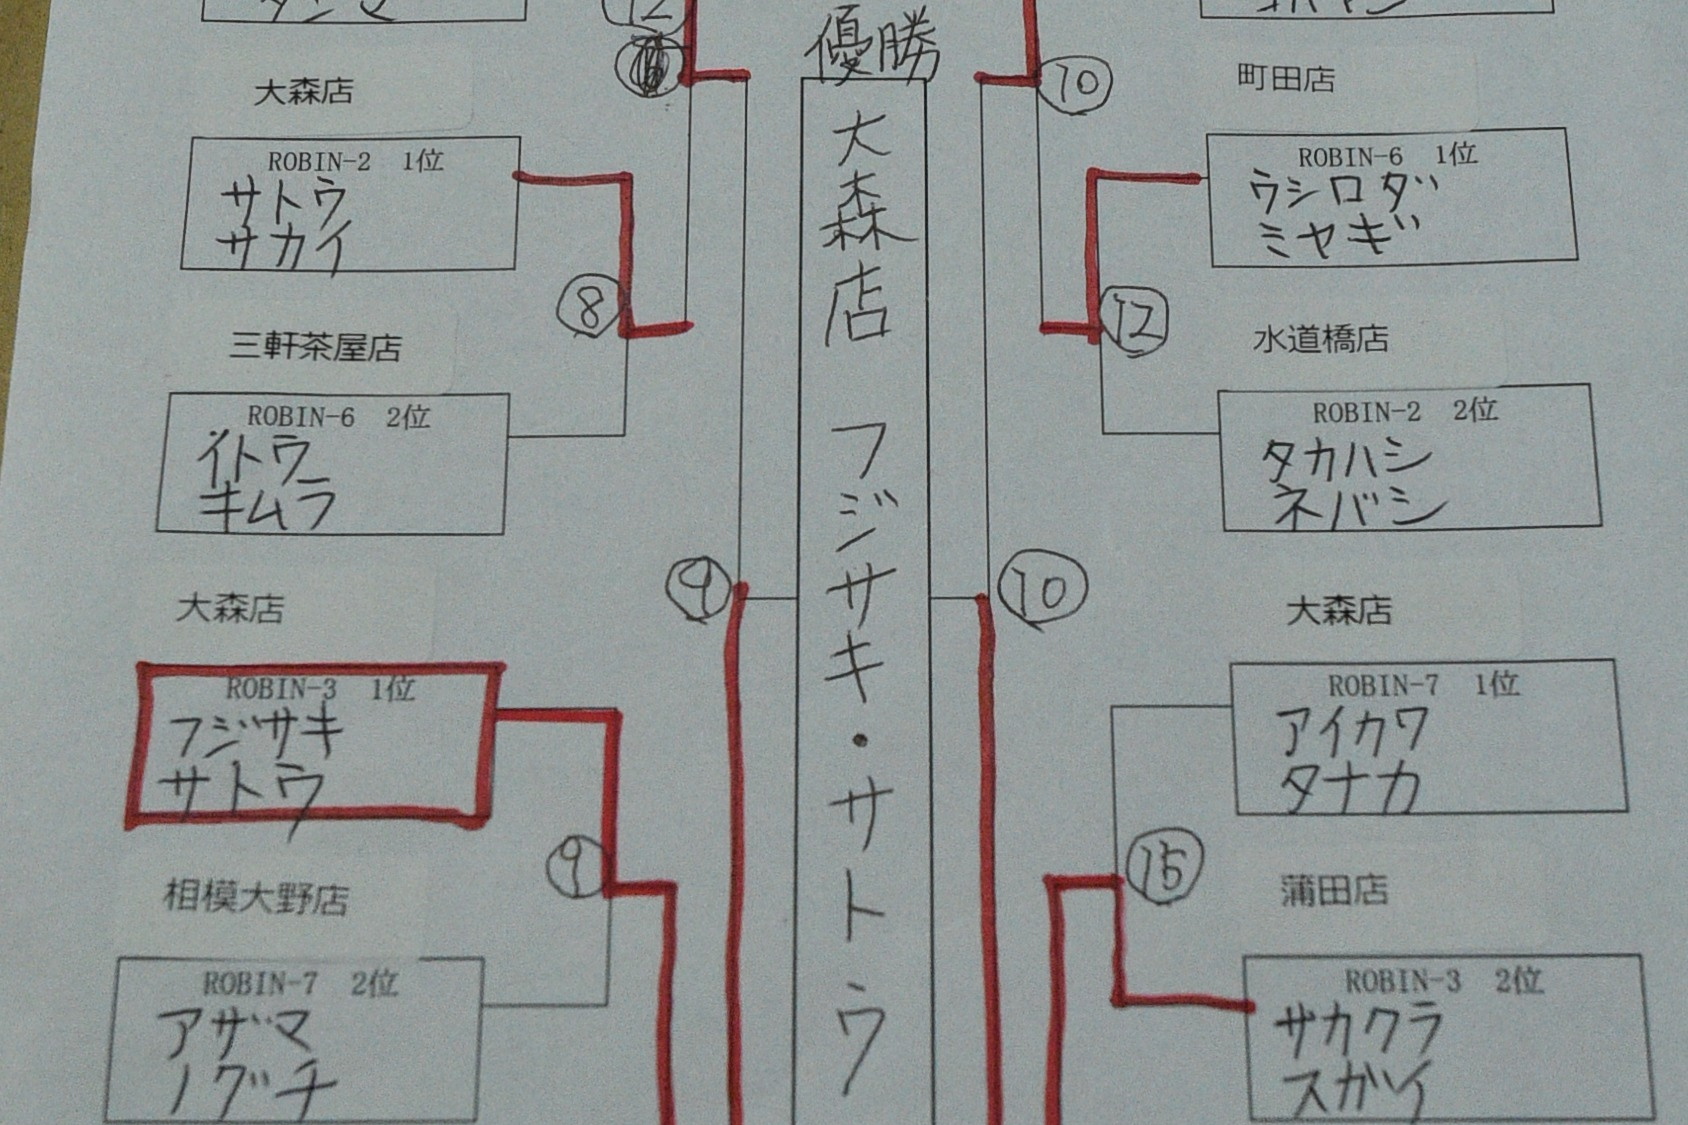 タジマ
⑫
大森店
ROBIN-2 1位
サトウ
サカイ
⑧
三軒茶屋店
ROBIN-6 2位
イトウ
キムラ
⑨
大森店
ROBIN-3 1位
フジサキ
サトウ
⑨
相模大野店
ROBIN-7 2位
アザマ
ノグチ
優勝
大森店 フジサキ・サトウ
⑩
町田店
ROBIN-6 1位
ウシロダ
ミヤギ
⑫
水道橋店
ROBIN-2 2位
タカハシ
ネバシ
⑩
大森店
ROBIN-7 1位
アイカワ
タナカ
⑮
蒲田店
ROBIN-3 2位
サカクラ
スガイ